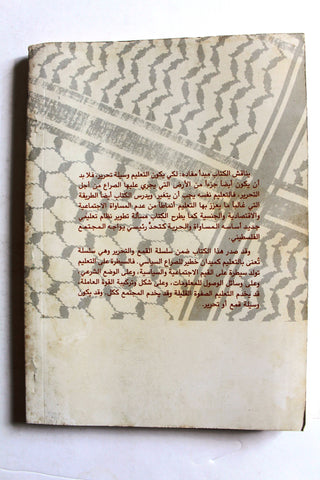 يناقش الكتاب مبدأ مفاده: لكي يكون التعليم وسيلة تحرير، فلا بد
أن يكون أيضاً جزءاً من الأرض التي يجري عليها الصراع من أجل
التحرير. فالتعليم نفسه يجب أن يتغير. ويدرس الكتاب أيضاً الطريقة
التي غالباً ما يعزز بها التعليم أنماطاً من عدم المساواة الاجتماعية
والاقتصادية والجنسية كما يطرح الكتاب مسألة تطوير نظام تعليمي
جديد أساسه المساواة والحرية كتحدٍ رئيسي يواجه المجتمع
الفلسطيني.
وقد صدر هذا الكتاب ضمن سلسلة القمع والتحرير وهي سلسلة
تُعنى بالتعليم كميدان خطير للصراع السياسي. فالسيطرة على التعليم
تولد سيطرة على القيم الاجتماعية والسياسية، وعلى الوضع الشرعي،
وعلى وسائل الوصول للمعلومات، وعلى شكل وتركيبة القوة العاملة.
قد يخدم التعليم الصفوة القليلة وقد يخدم المجتمع ككل. وقد يكون
وسيلة قمع أو تحرير.